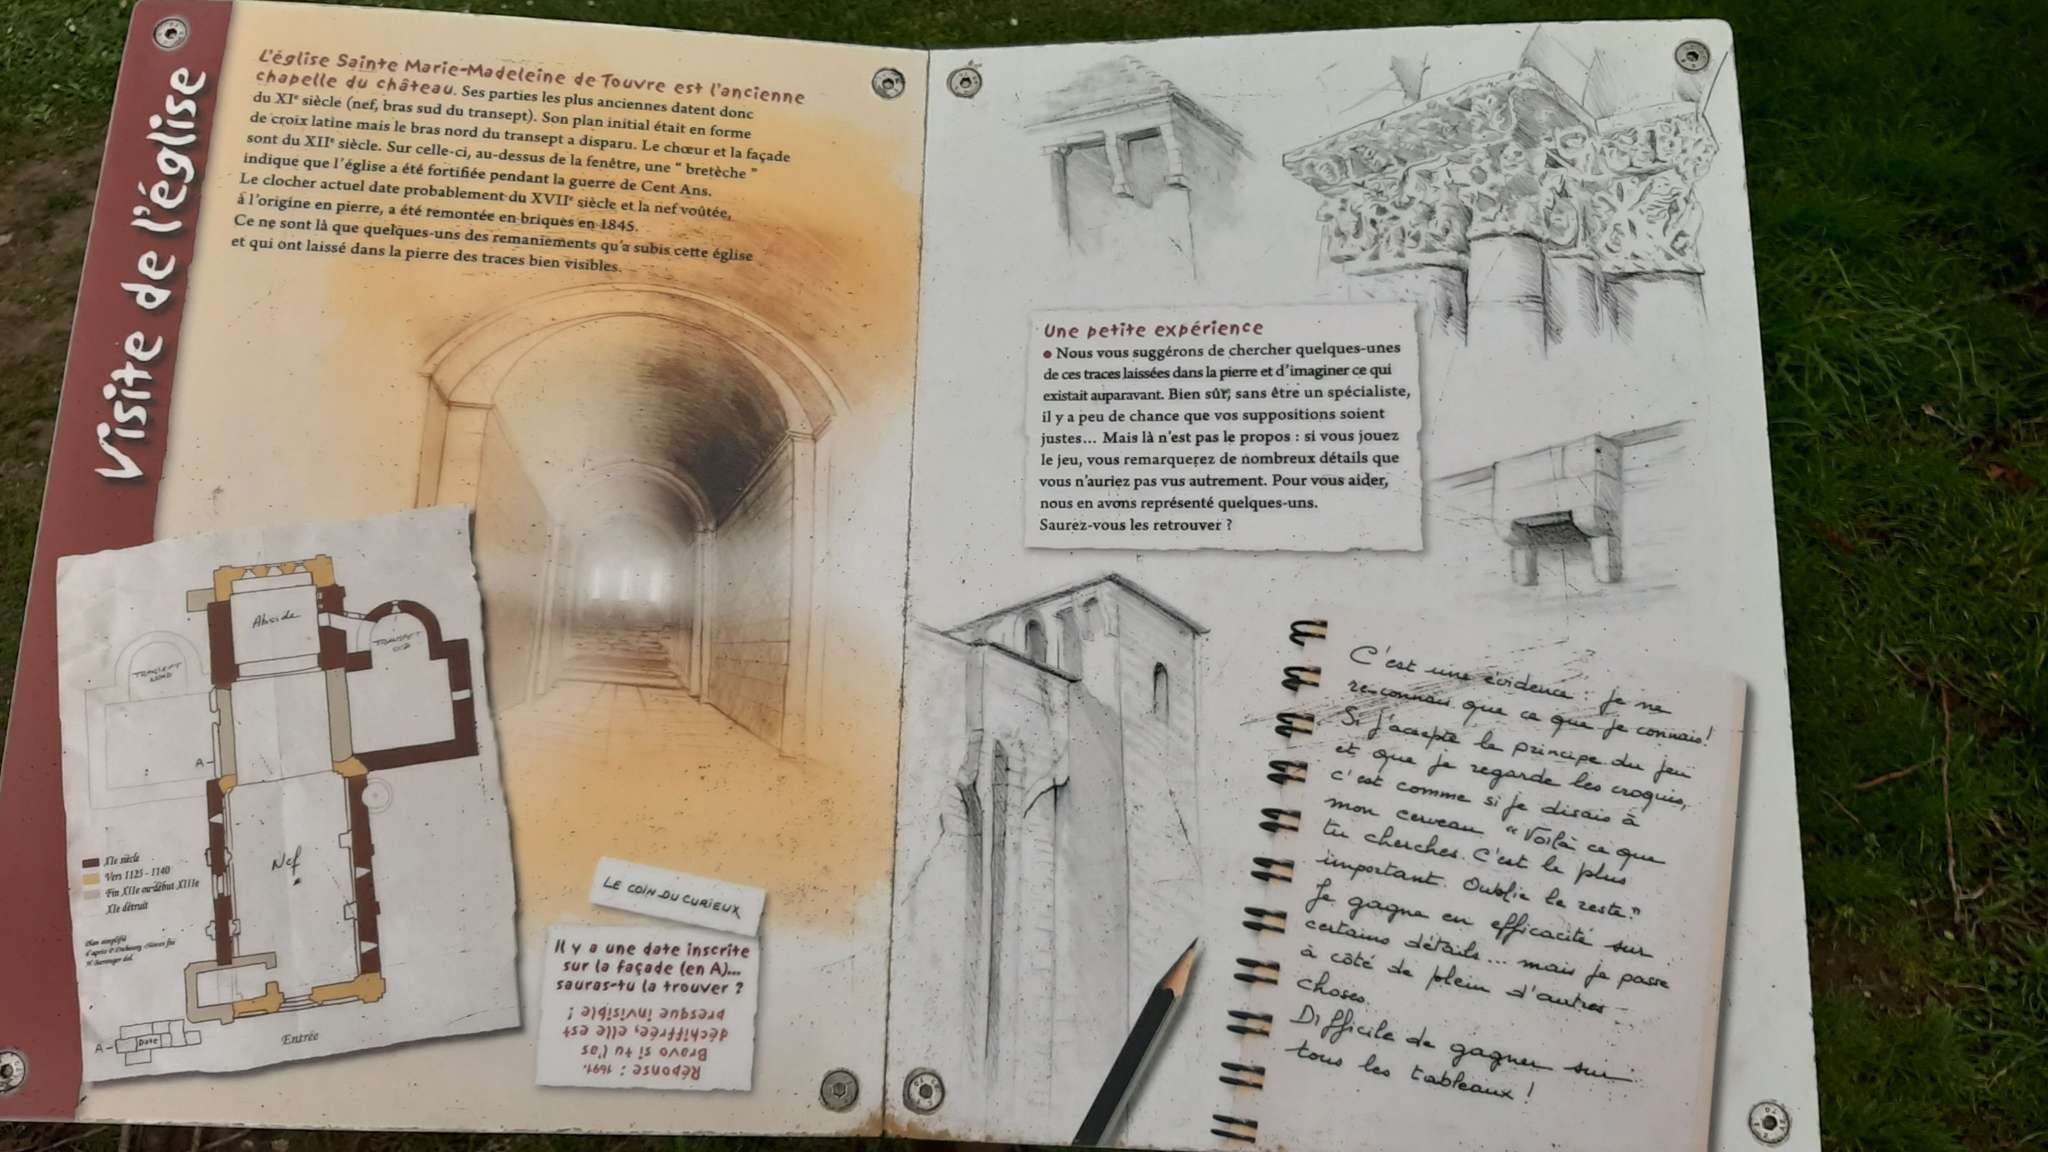 Visite de l'église
L'église Sainte Marie-Madeleine de Touvre est l'ancienne
chapelle du château. Ses parties les plus anciennes datent donc
du XIe siècle (nef, bras sud du transept). Son plan initial était en forme
de croix latine mais le bras nord du transept a disparu. Le chœur et la façade
sont du XIIe siècle. Sur celle-ci, au-dessus de la fenêtre, une “ bretèche ”
indique que l'église a été fortifiée pendant la guerre de Cent Ans.
Le clocher actuel date probablement du XVIIe siècle et la nef voûtée,
à l'origine en pierre, a été remontée en briques en 1845.
Ce ne sont là que quelques-uns des remaniements qu'a subis cette église
et qui ont laissé dans la pierre des traces bien visibles.
Abside
TRANSEPT
SUD
TRANSEPT
NORD
A
Nef
XIe siècle
Vers 1125 - 1140
Fin XIIe ou début XIIIe
XIe détruit
Plan simplifié
d'après
del.
A
Date
Entrée
LE COIN DU CURIEUX
Il y a une date inscrite
sur la façade (en A)...
sauras-tu la trouver ?
Réponse : 1691.
Bravo si tu l'as
déchiffrée, elle est
presque invisible !
Une petite expérience
• Nous vous suggérons de chercher quelques-unes
de ces traces laissées dans la pierre et d'imaginer ce qui
existait auparavant. Bien sûr, sans être un spécialiste,
il y a peu de chance que vos suppositions soient
justes... Mais là n'est pas le propos : si vous jouez
le jeu, vous remarquerez de nombreux détails que
vous n'auriez pas vus autrement. Pour vous aider,
nous en avons représenté quelques-uns.
Saurez-vous les retrouver ?
C'est une évidence : je ne
reconnais que ce que je connais !
Si j'accepte le principe du jeu
et que je regarde les croquis,
c'est comme si je disais à
mon cerveau "Voilà ce que
tu cherches. C'est le plus
important. Oublie le reste."
Je gagne en efficacité sur
certains détails... mais je passe
à côté de plein d'autres
choses.
Difficile de gagner sur
tous les tableaux !